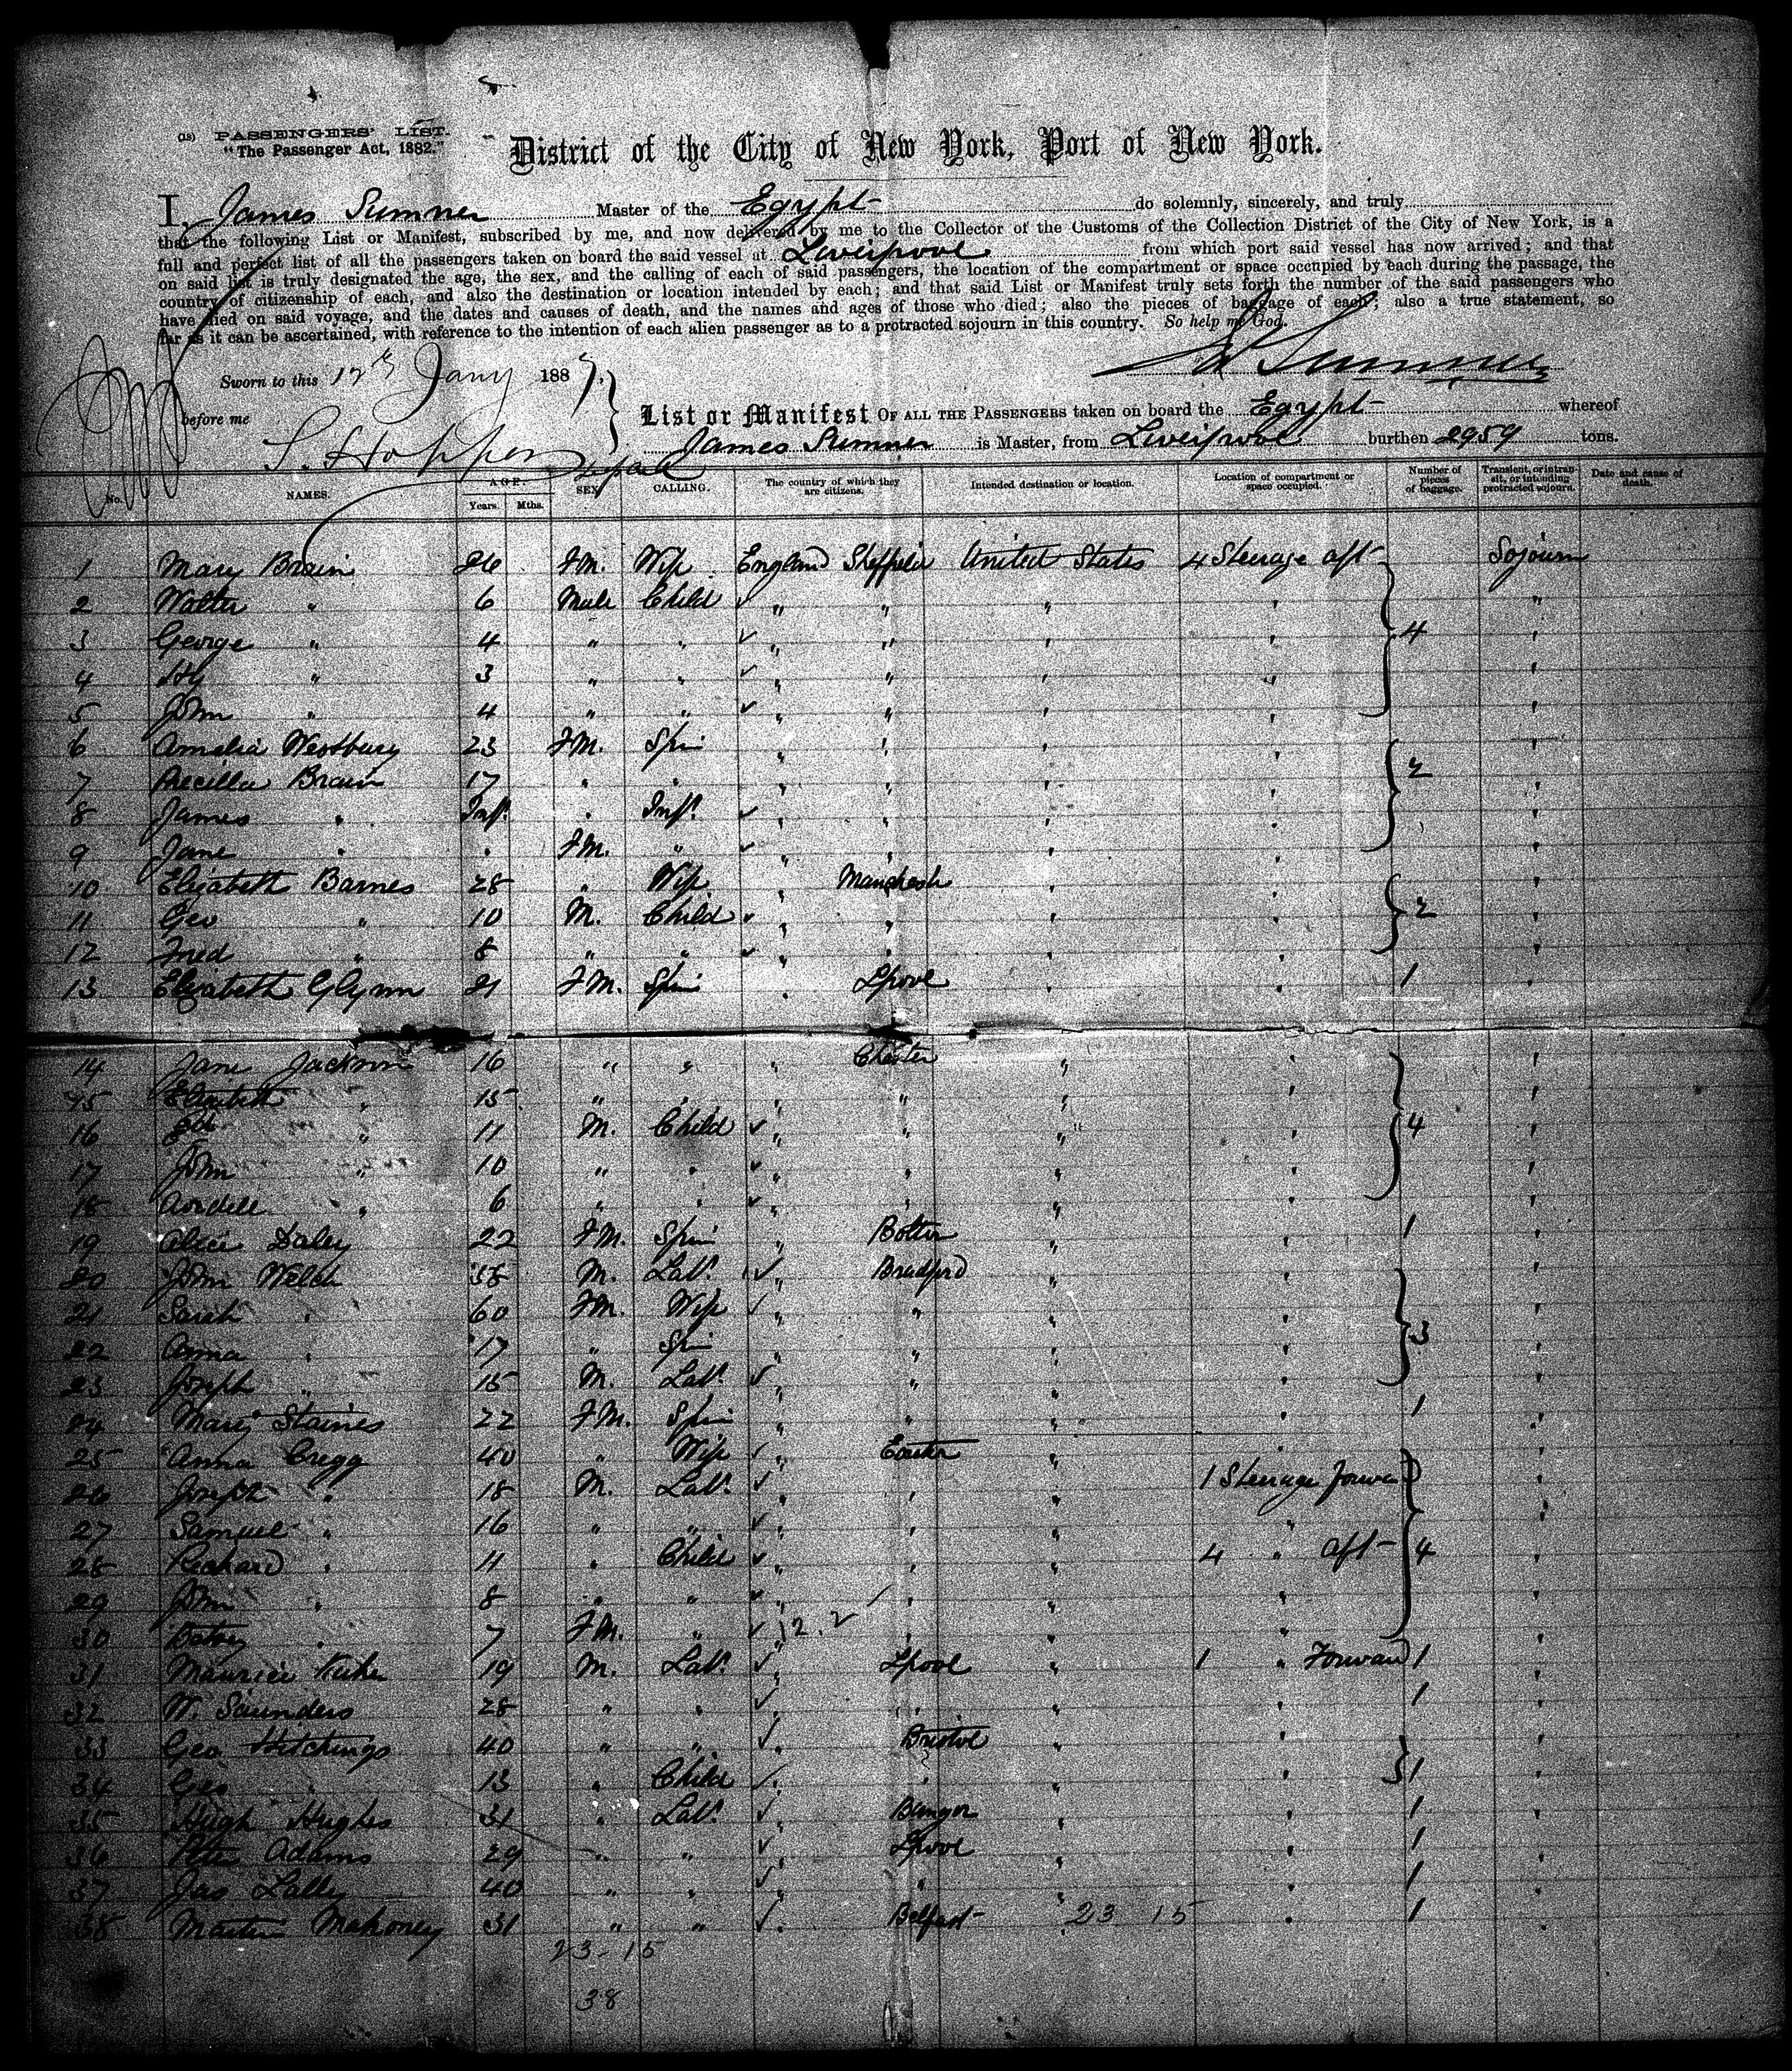 (18) PASSENGERS' LIST.
"The Passenger Act, 1882."
District of the City of New York, Port of New York.
I, James Sumner Master of the Egypt do solemnly, sincerely, and truly
that the following List or Manifest, subscribed by me, and now delivered by me to the Collector of the Customs of the Collection District of the City of New York, is a
full and perfect list of all the passengers taken on board the said vessel at Liverpool from which port said vessel has now arrived; and that
on said list is truly designated the age, the sex, and the calling of each of said passengers, the location of the compartment or space occupied by each during the passage, the
country of citizenship of each, and also the destination or location intended by each; and that said List or Manifest truly sets forth the number of the said passengers who
have died on said voyage, and the dates and causes of death, and the names and ages of those who died; also the pieces of baggage of each; also a true statement, so
far as it can be ascertained, with reference to the intention of each alien passenger as to a protracted sojourn in this country. So help me God.
Sumner
Sworn to this 12th Jany 188
before me
List or Manifest OF ALL THE PASSENGERS taken on board the Egypt whereof
James Sumner is Master, from Liverpool burthen 2959 tons.
No. NAMES. AGE. Years. Mths. SEX CALLING. The country of which they are citizens. Intended destination or location. Location of compartment or space occupied. Number of pieces of baggage. Transient, or in transit, or intending protracted sojourn. Date and cause of death.
1 Mary Brain 26 FM. Wife England Sheffield United States 4 Steerage aft Sojourn
2 Walter " 6 Male Child " " " " "
3 George " 4 " " " " " " 4 "
4 Hy " 3 " " " " " " "
5 John " 4 " " " " " " "
6 Amelia Westbury 23 FM. Spin " " " " "
7 Brain 17 " " " " " " 2 "
8 James " Inf. " Inf. " " " " "
9 Jane " " FM. " " " " " "
10 Elizabeth Barnes 28 " Wife " Manchesh " " "
11 Geo " 10 M. Child " " " " 2 "
12 Fred " 8 " " " " " " "
13 Elizabeth Glynn 21 FM. Spin " Lpool " " 1 "
14 Jane Jackson 16 " " " Chester " " "
15 Elizabeth " 15 " " " " " " "
16 " 11 M. Child " " " " 4 "
17 John " 10 " " " " " " "
18 " 6 " " " " " " "
19 Alice Daley 22 FM. Spin " Bolton " " 1 "
20 John Welch 38 M. Lab. " Bradford " " "
21 Sarah " 60 FM. Wife " " " " "
22 Anna " 17 " Spin " " " " 3 "
23 Joseph " 15 M. Lab. " " " " "
24 Mary Staines 22 FM. Spin " " " " 1 "
25 Anna Cregg 40 " Wife " " " "
26 Joseph " 18 M. Lab. " " " 1 Steerage Forwa "
27 Samuel " 16 " " " " " " "
28 Richard " 11 " Child " " " 4 " aft 4 "
29 John " 8 " " " " " " "
30 " 7 FM. " " " " " "
31 Maurice 19 M. Lab. " Lpool " 1 " Forward 1 "
32 W. Saunders 28 " " " " " " 1 "
33 Geo. Hitchings 40 " " " Bristol " " "
34 Geo " 13 " Child " " " " 1 "
35 Hugh Hughes 31 " Lab. " Bangor " " 1 "
36 Peter Adams 29 " " " Lpool " " 1 "
37 Jas Lally 40 " " " " " " 1 "
38 Martin Mahoney 31 " " " Belfast " 23 15 " 1 "
23-15
38